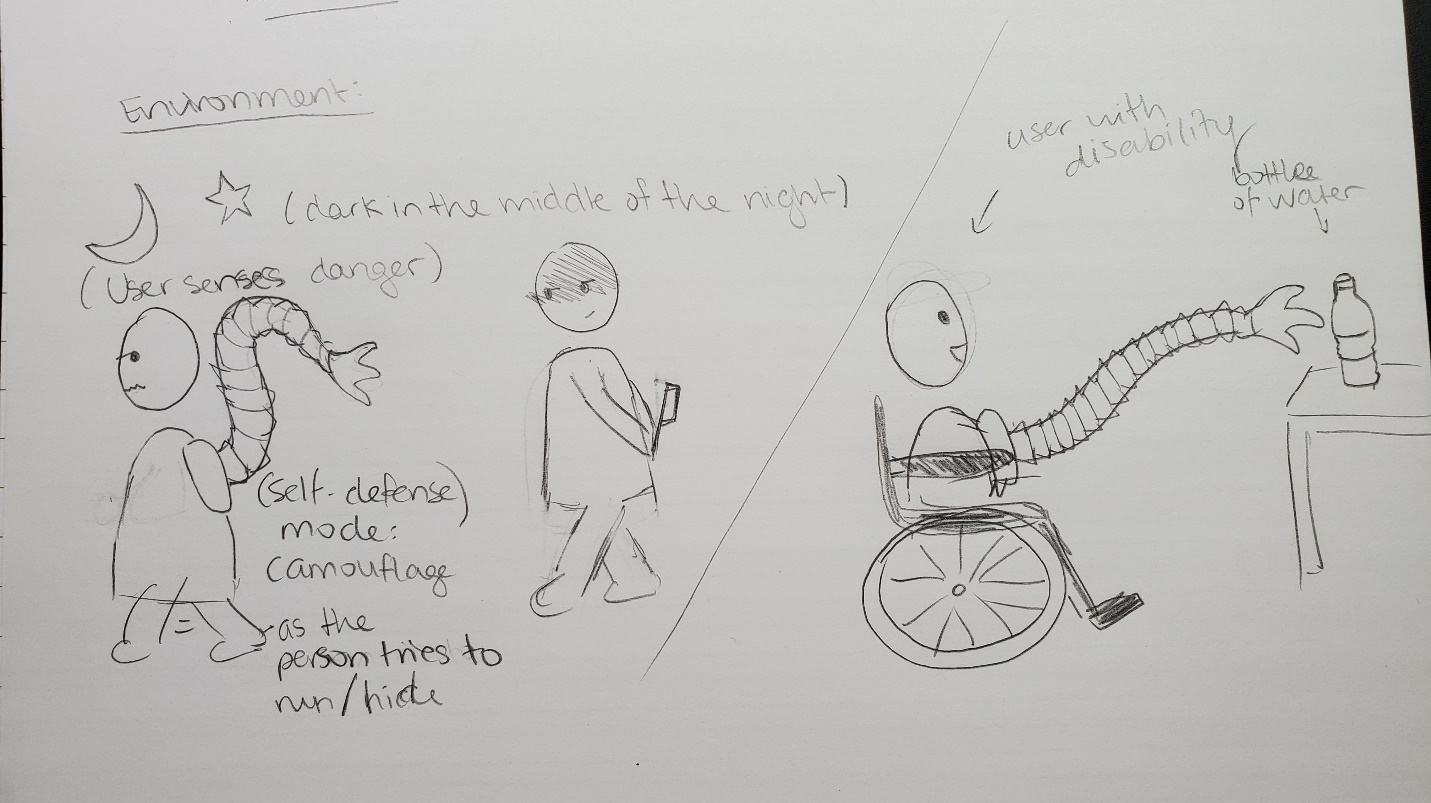 Environment:
(dark in the middle of the night)
(User senses danger)
(self-defense)
mode:
camouflage
as the
person tries to
run/hide
user with
disability
bottle
of water